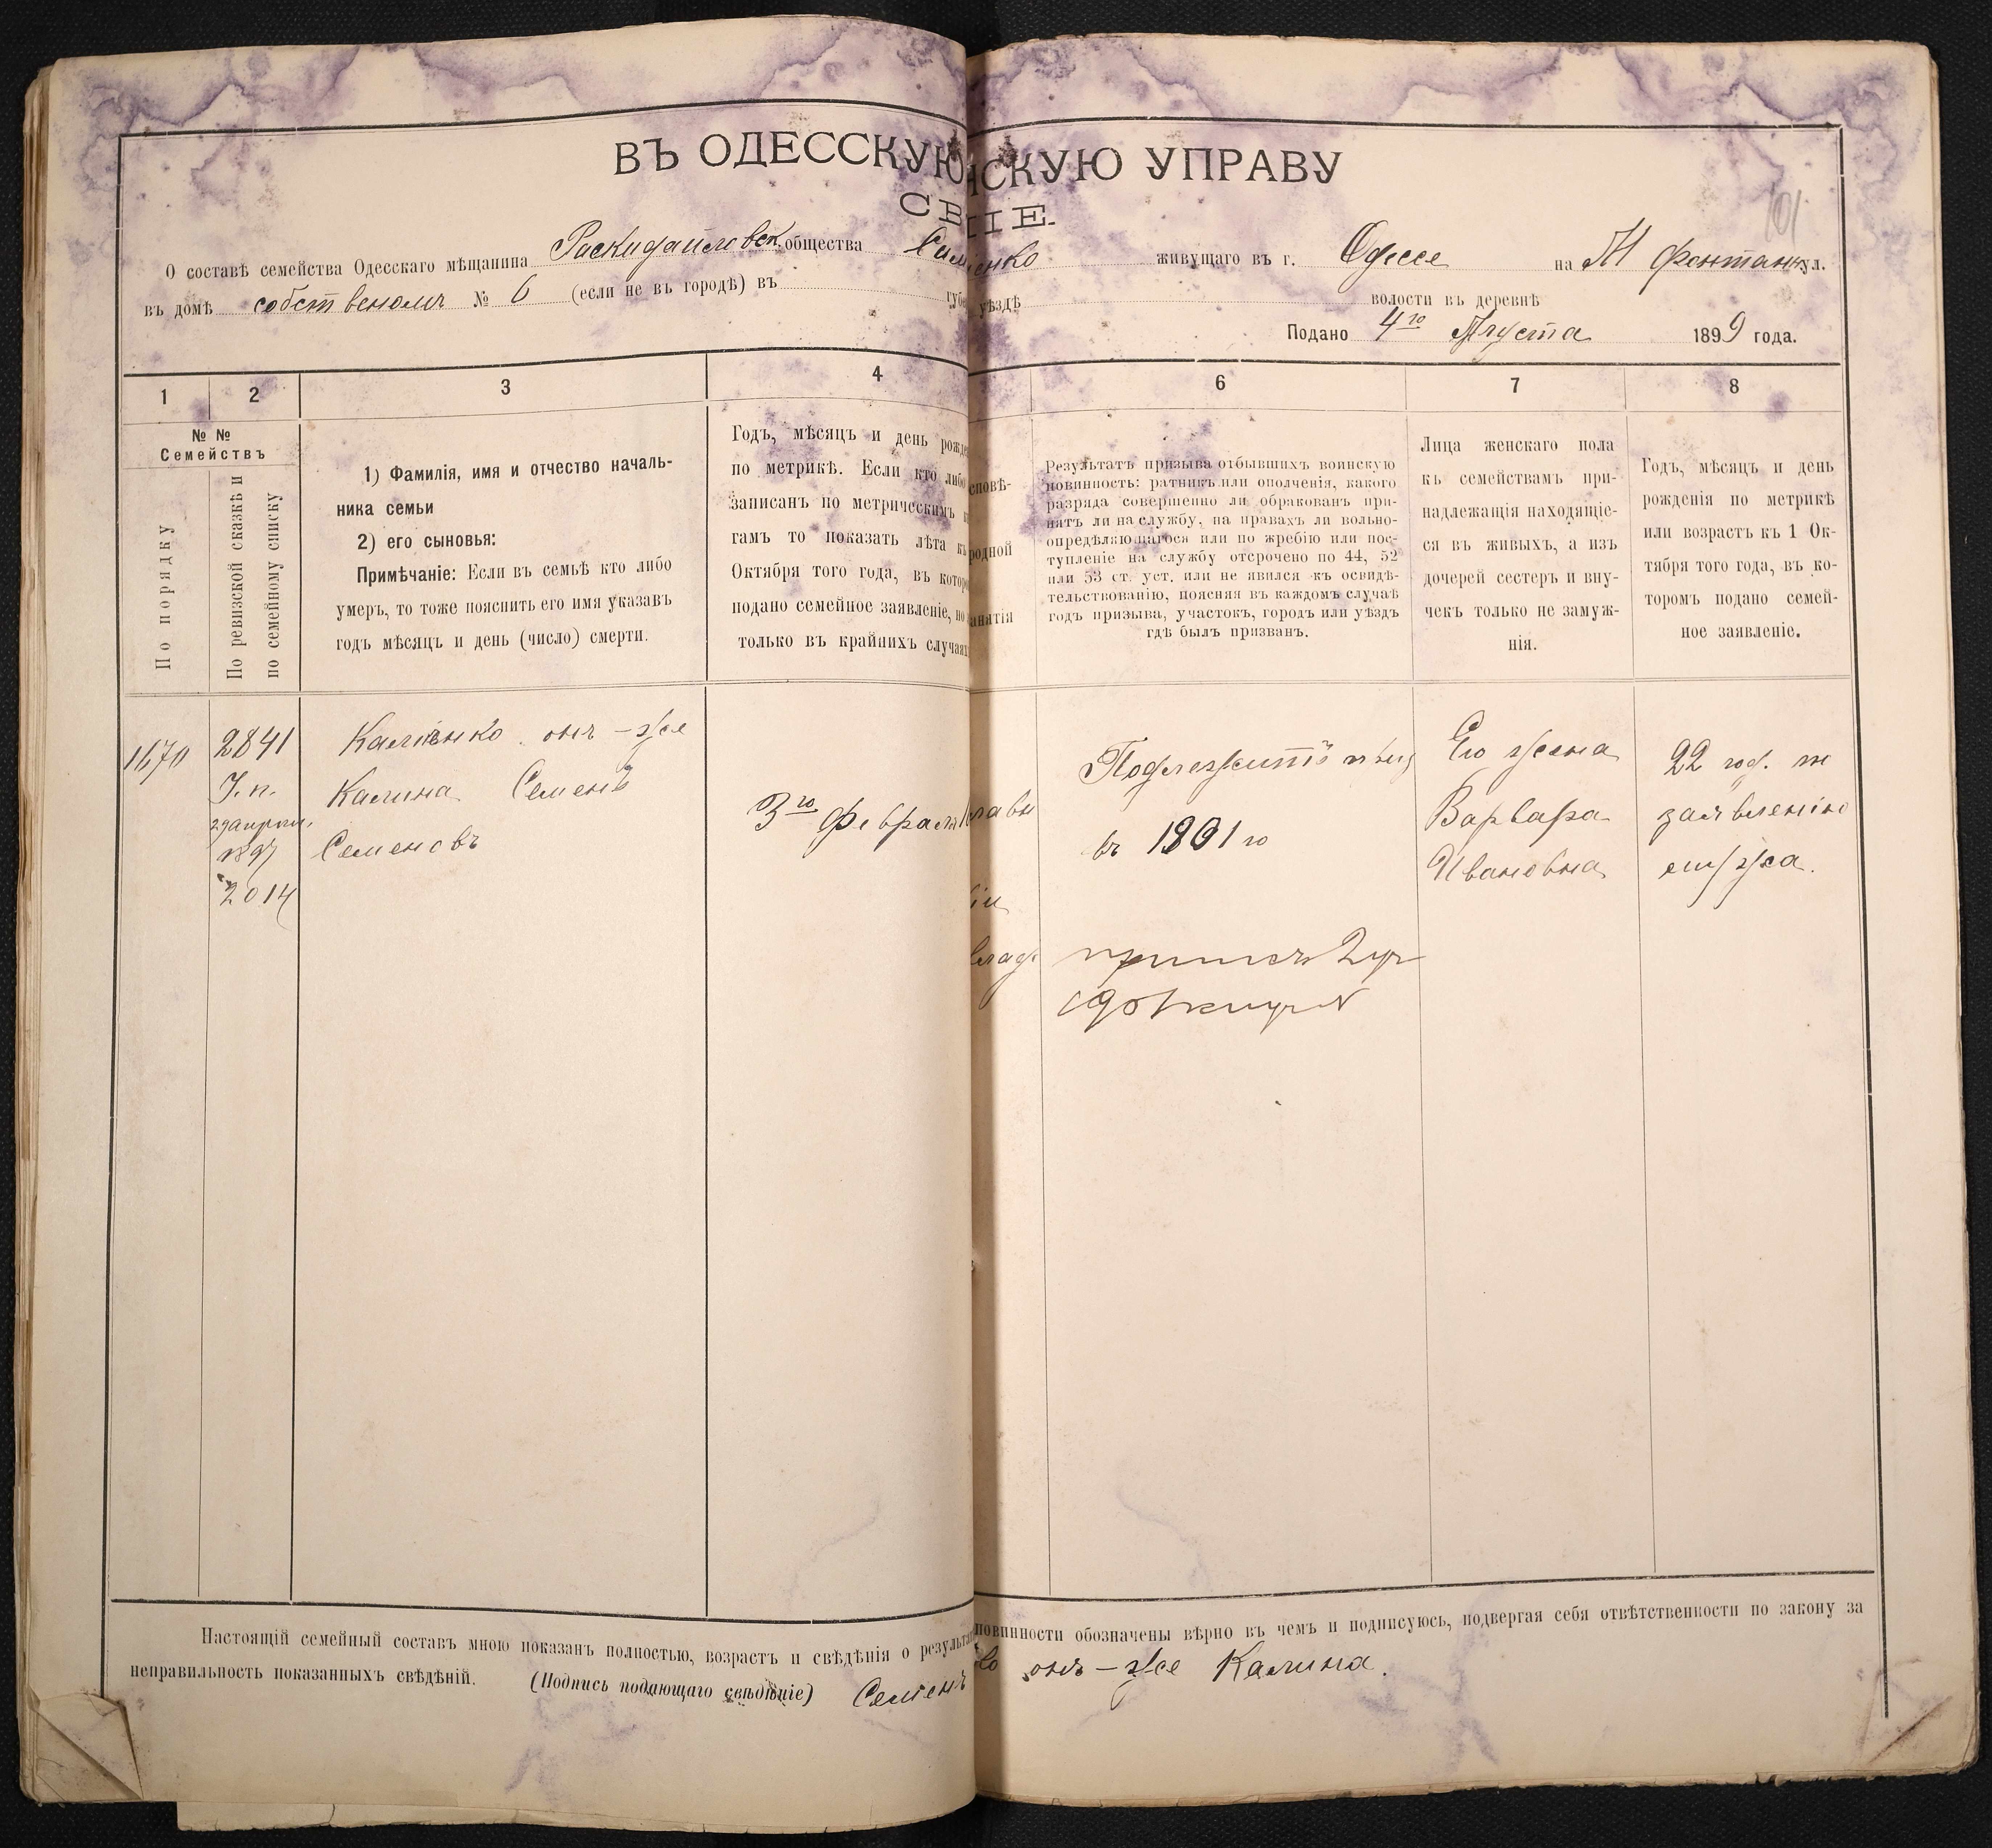 ВЪ ОДЕССКУЮ
НСКУЮ УПРАВУ
СВ
НІЕ.
101
О составѣ семейства Одесскаго мѣщанина Раскидайловск общества
живущаго въ г. Одессе на М фонтанк ул.
въ домѣ собственомъ № 6 (если не въ городѣ) въ губе
уѣздѣ волости въ деревнѣ
Подано 4го Августа 1899 года.
1 2 3 4
6 7 8
№ №
Семействъ
По порядку
По ревизской сказкѣ и
по семейному списку
1) Фамилія, имя и отчество началь-
ника семьи
2) его сыновья:
Примѣчаніе: Если въ семьѣ кто либо
умеръ, то тоже пояснить его имя указавъ
годъ мѣсяцъ и день (число) смерти.
Годъ, мѣсяцъ и день рожде
по метрикѣ. Если кто либо
записанъ по метрическимъ к
гамъ то показать лѣта къ
Октября того года, въ которо
подано семейное заявленіе, но
только въ крайнихъ случаях
сповѣ-
родной
анятія
Результатъ призыва отбывшихъ воинскую
повинность: ратникъ или ополченія, какого
разряда совершенно ли обракованъ при-
нятъ ли на службу, на правахъ ли вольно-
опредѣляющагося или по жребію или пос-
тупленіе на службу отсрочено по 44, 52
или 53 ст. уст. или не явился къ освидѣ-
тельствованію, поясняя въ каждомъ случаѣ
годъ призыва, участокъ, городъ или уѣздъ
гдѣ былъ призванъ.
Лица женскаго пола
къ семействамъ при-
надлежащія находящіе-
ся въ живыхъ, а изъ
дочерей сестеръ и вну-
чекъ только не замуж-
нія.
Годъ, мѣсяцъ и день
рожденія по метрикѣ
или возрастъ къ 1 Ок-
тября того года, въ ко-
торомъ подано семей-
ное заявленіе.
1670
2841
29 април.
1897
2014
онъ-же
Калина Семенъ
Семеновъ
3го Февраля
Подлежитъ
въ 1901 го
Его жена
Варвара
Ивановна
22 год. по
заявленію
мужа.
Настоящій семейный составъ мною показанъ полностью, возрастъ и свѣдѣнія о результат
повинности обозначены вѣрно въ чемъ и подписуюсь, подвергая себя отвѣтственности по закону за
неправильность показанныхъ свѣдѣній. (Подпись подающаго свѣдѣніе) Семенъ
ко онъ-же Калина.